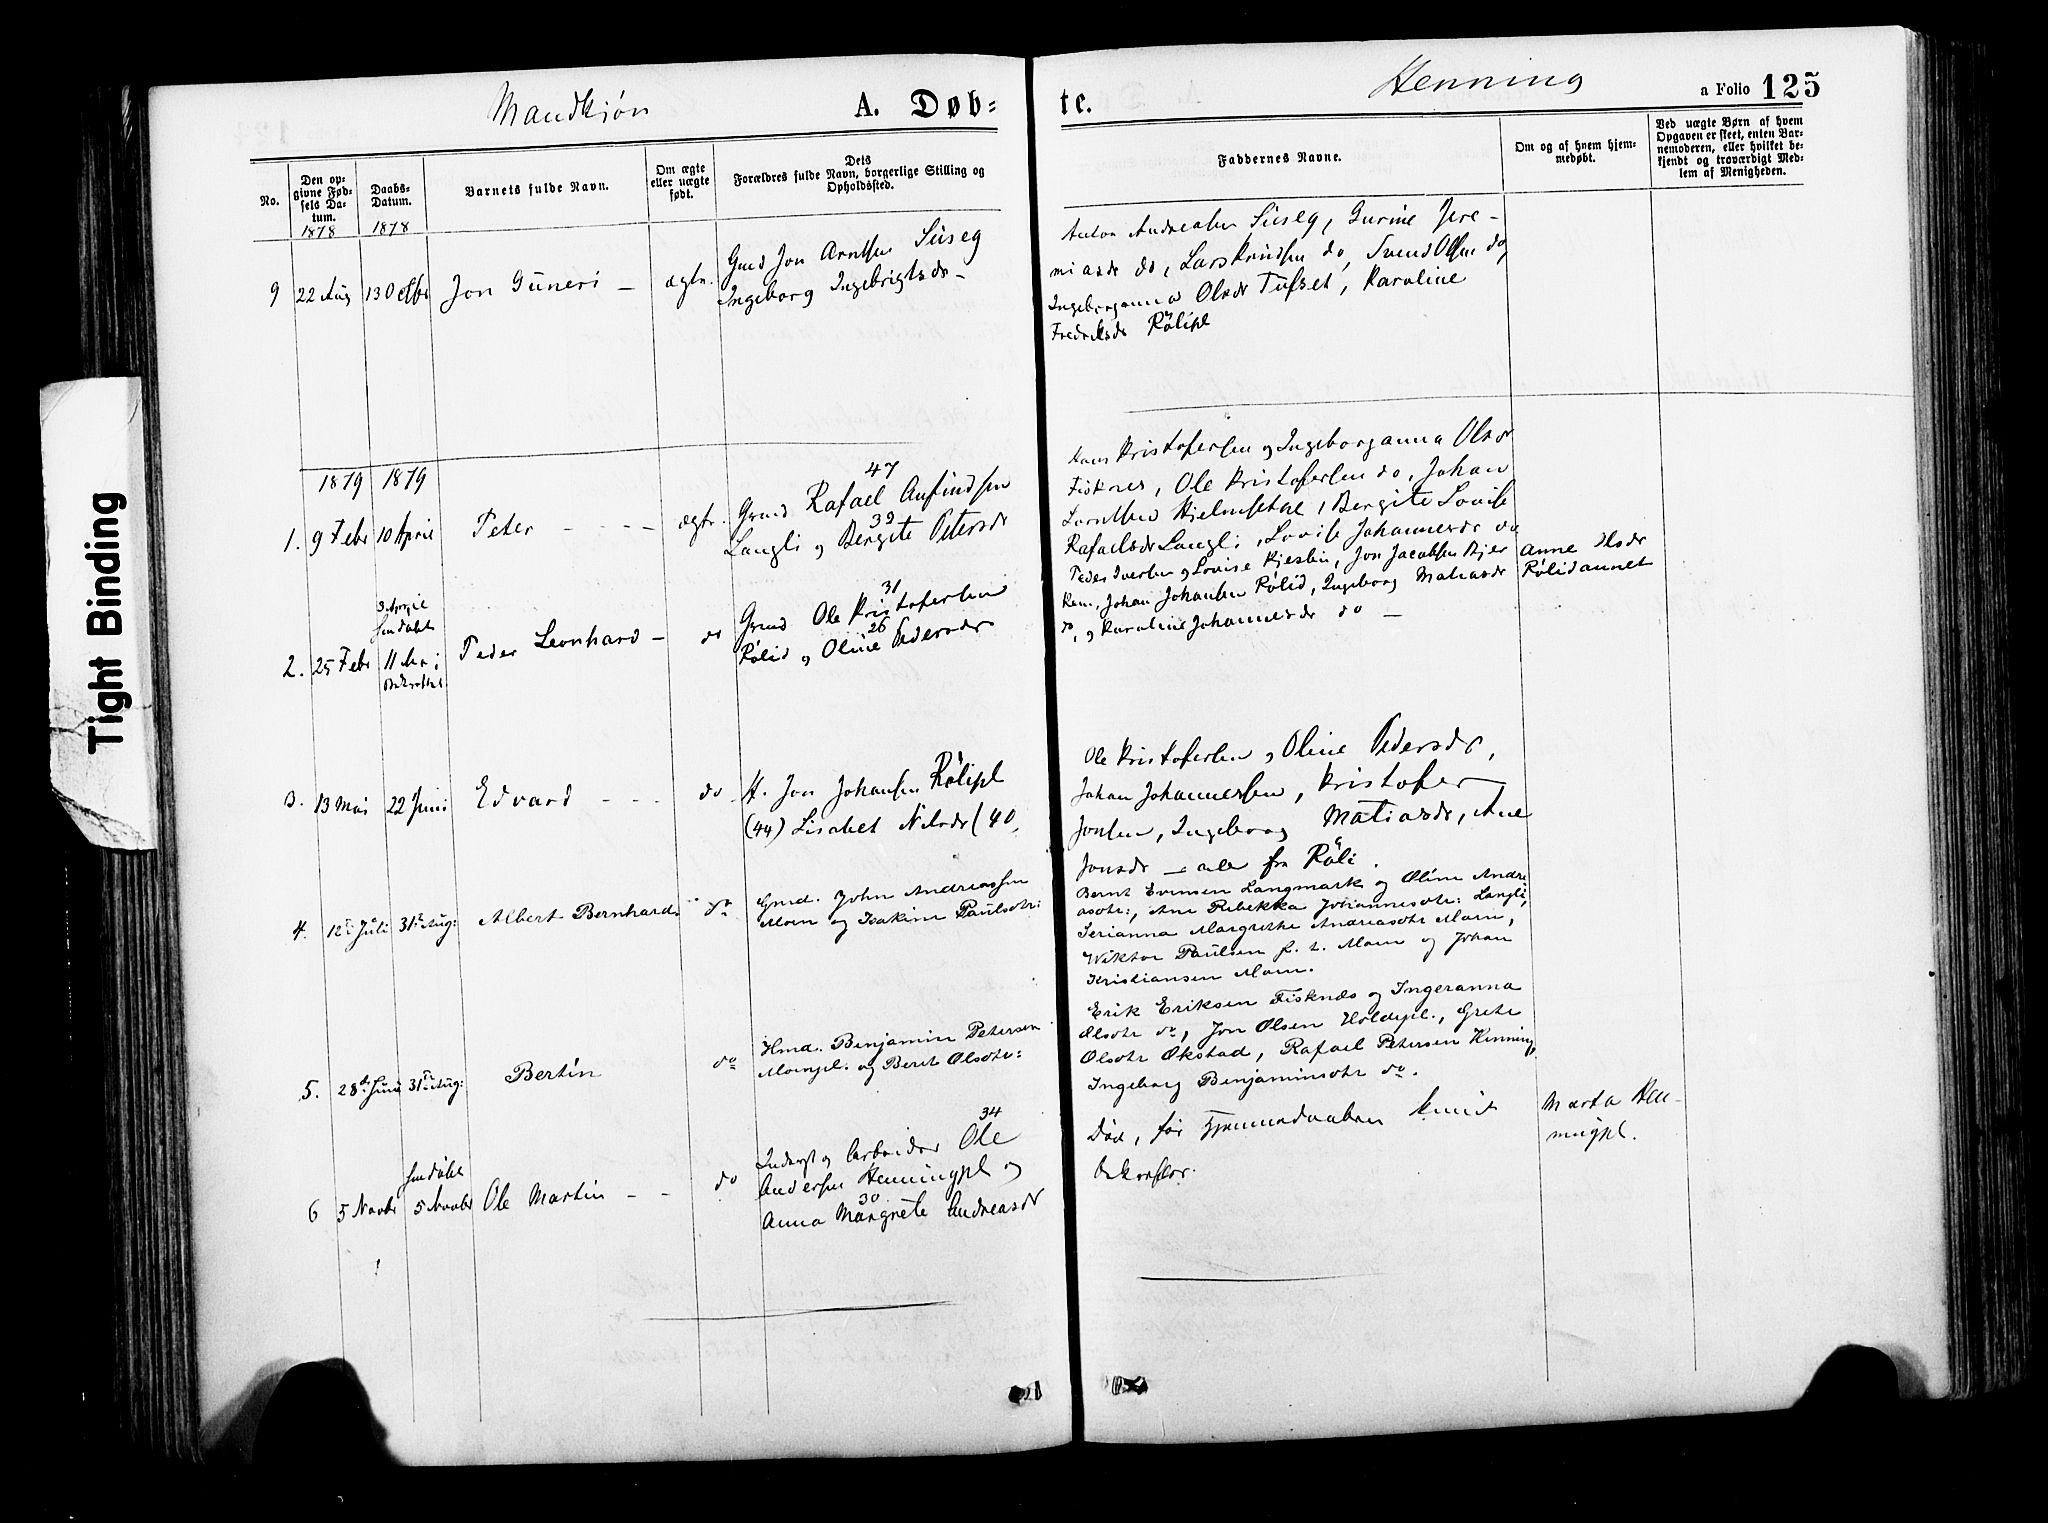 Mandkjøn
A. Døb=
te.
Henning
a Folio 125
No.
Den op-
givne Fød-
sels Da-
tum.
1878
Daabs-
Datum.
1878
Barnets fulde Navn.
Om ægte
eller uægte
født.
Dets
Forældres fulde Navn, borgerlige Stilling og
Opholdssted.
Faddernes Navne.
Om og af hvem hjem-
medøbt.
Ved uægte Børn af hvem
Opgaven er skeet, enten Bar-
nemoderen, eller hvilket be-
kjendt og troværdigt Med-
lem af Menigheden.
9
22 Aug
13 Octbr
Jon Guneri –
ægte.
Gmd Jon Arntsen Suseg
Ingeborg Ingebrigtsdr –
Anton Andreasen Suseg, Gurine Jere-
miasdr do, Lars Knudsen do, Svend Olsen do,
Ingeborganna Olsdr Tufset, Karoline
Fredriksdr Rölipl
1879
1879
1.
9 Febr
10 April
Peter - - - -
ægte.
47
Gmd Rafael Anfindsen
39
Langli og Bergite Petersdr
Hans Kristofersen og Ingeborganna Olsdr
Fisknes, Ole Kristofersen do, Johan
Larntsen Hjelmsetae, Bergite Lovise
Rafaelsdr Langli, Lovise Johannesdr do
2.
25 Febr
3 April
hmdøbt
11 Mai
Peder Leonhard –
do
31
Gmd Ole Kristofersen
26
Rölid og Oline Pedersdr
Peder Iversen og Lovise Kjesbu, Jon Jacobsen Kjer
Rem, Johan Johansen Rölid, Ingeborg Matiasdr
do, og Karoline Johannesdr do –
Anne Olsdr
Rölidaunet
3.
13 Mai
22 Juni
Edvard - - -
do
H. Jon Johansen Rölipl
(44) Lisabet Nilsdr (40
Ole Kristofersen og Oline Pedersdr,
Johan Johannessen, Kristofer
Jonsen, Ingeborg Matiasdr, Ane
Jonsdr – alle fra Röli.
4.
12te Juli
31te Aug:
Albert Bernhard
do
Gmd. John Andreassen
Moen og Isakine Paulsdtr:
Bernt Evensen Langmark og Oline Andre
asdtr:, Ane Rebekka Johannesdtr: Langli,
Serianna Margrethe Andreasdtr Moen,
Wiktor Paulsen f. t. Moen og Johan
Kristiansen Moen.
5.
28de Juni
31te Aug:
Bertin
do
Hmd. Benjamin Petersen
Moenpl. og Beret Olsdtr:
Erik Eriksen Fisknæs og Ingeranna
Olsdtr do, Jon Olsen Holdepl., Grete
Olsdtr Økstad, Rafael Petersen Henning,
Ingeborg Benjaminsdtr do.
6
5 Novbr
hmdøbt
5 Novbr
Ole Martin - -
do
34
Inderst og Arbeider Ole
Andersen Henningpl og
30
Anna Margrete Andreasdr
Död, før Hjemmedaaben kunde
bekræftes.
Marta Hen-
ningpl.
Tight Binding